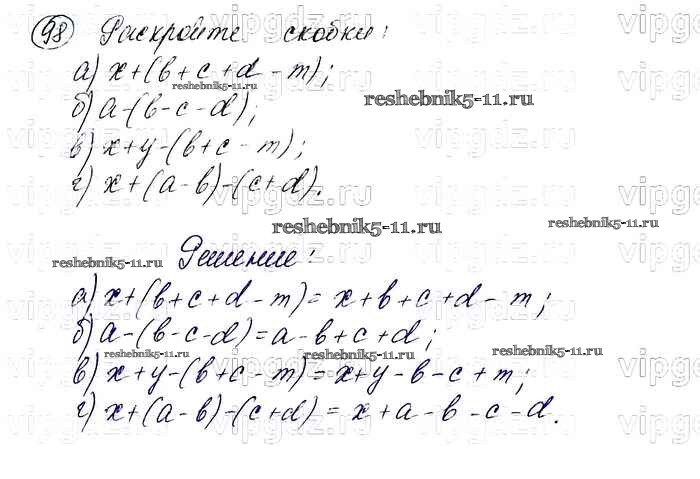 98 Раскройте скобки:
а) x+(b+c+d-m);
б) a-(b-c-d);
в) x+y-(b+c-m);
г) x+(a-b)-(c+d).
Решение:
а) x+(b+c+d-m)=x+b+c+d-m;
б) a-(b-c-d)=a-b+c+d;
в) x+y-(b+c-m)=x+y-b-c+m;
г) x+(a-b)-(c+d)=x+a-b-c-d.
reshebnik5-11.ru
reshebnik5-11.ru
reshebnik5-11.ru
reshebnik5-11.ru
reshebnik5-11.ru
reshebnik5-11.ru
reshebnik5-11.ru
reshebnik5-11.ru
vipgdz.ru